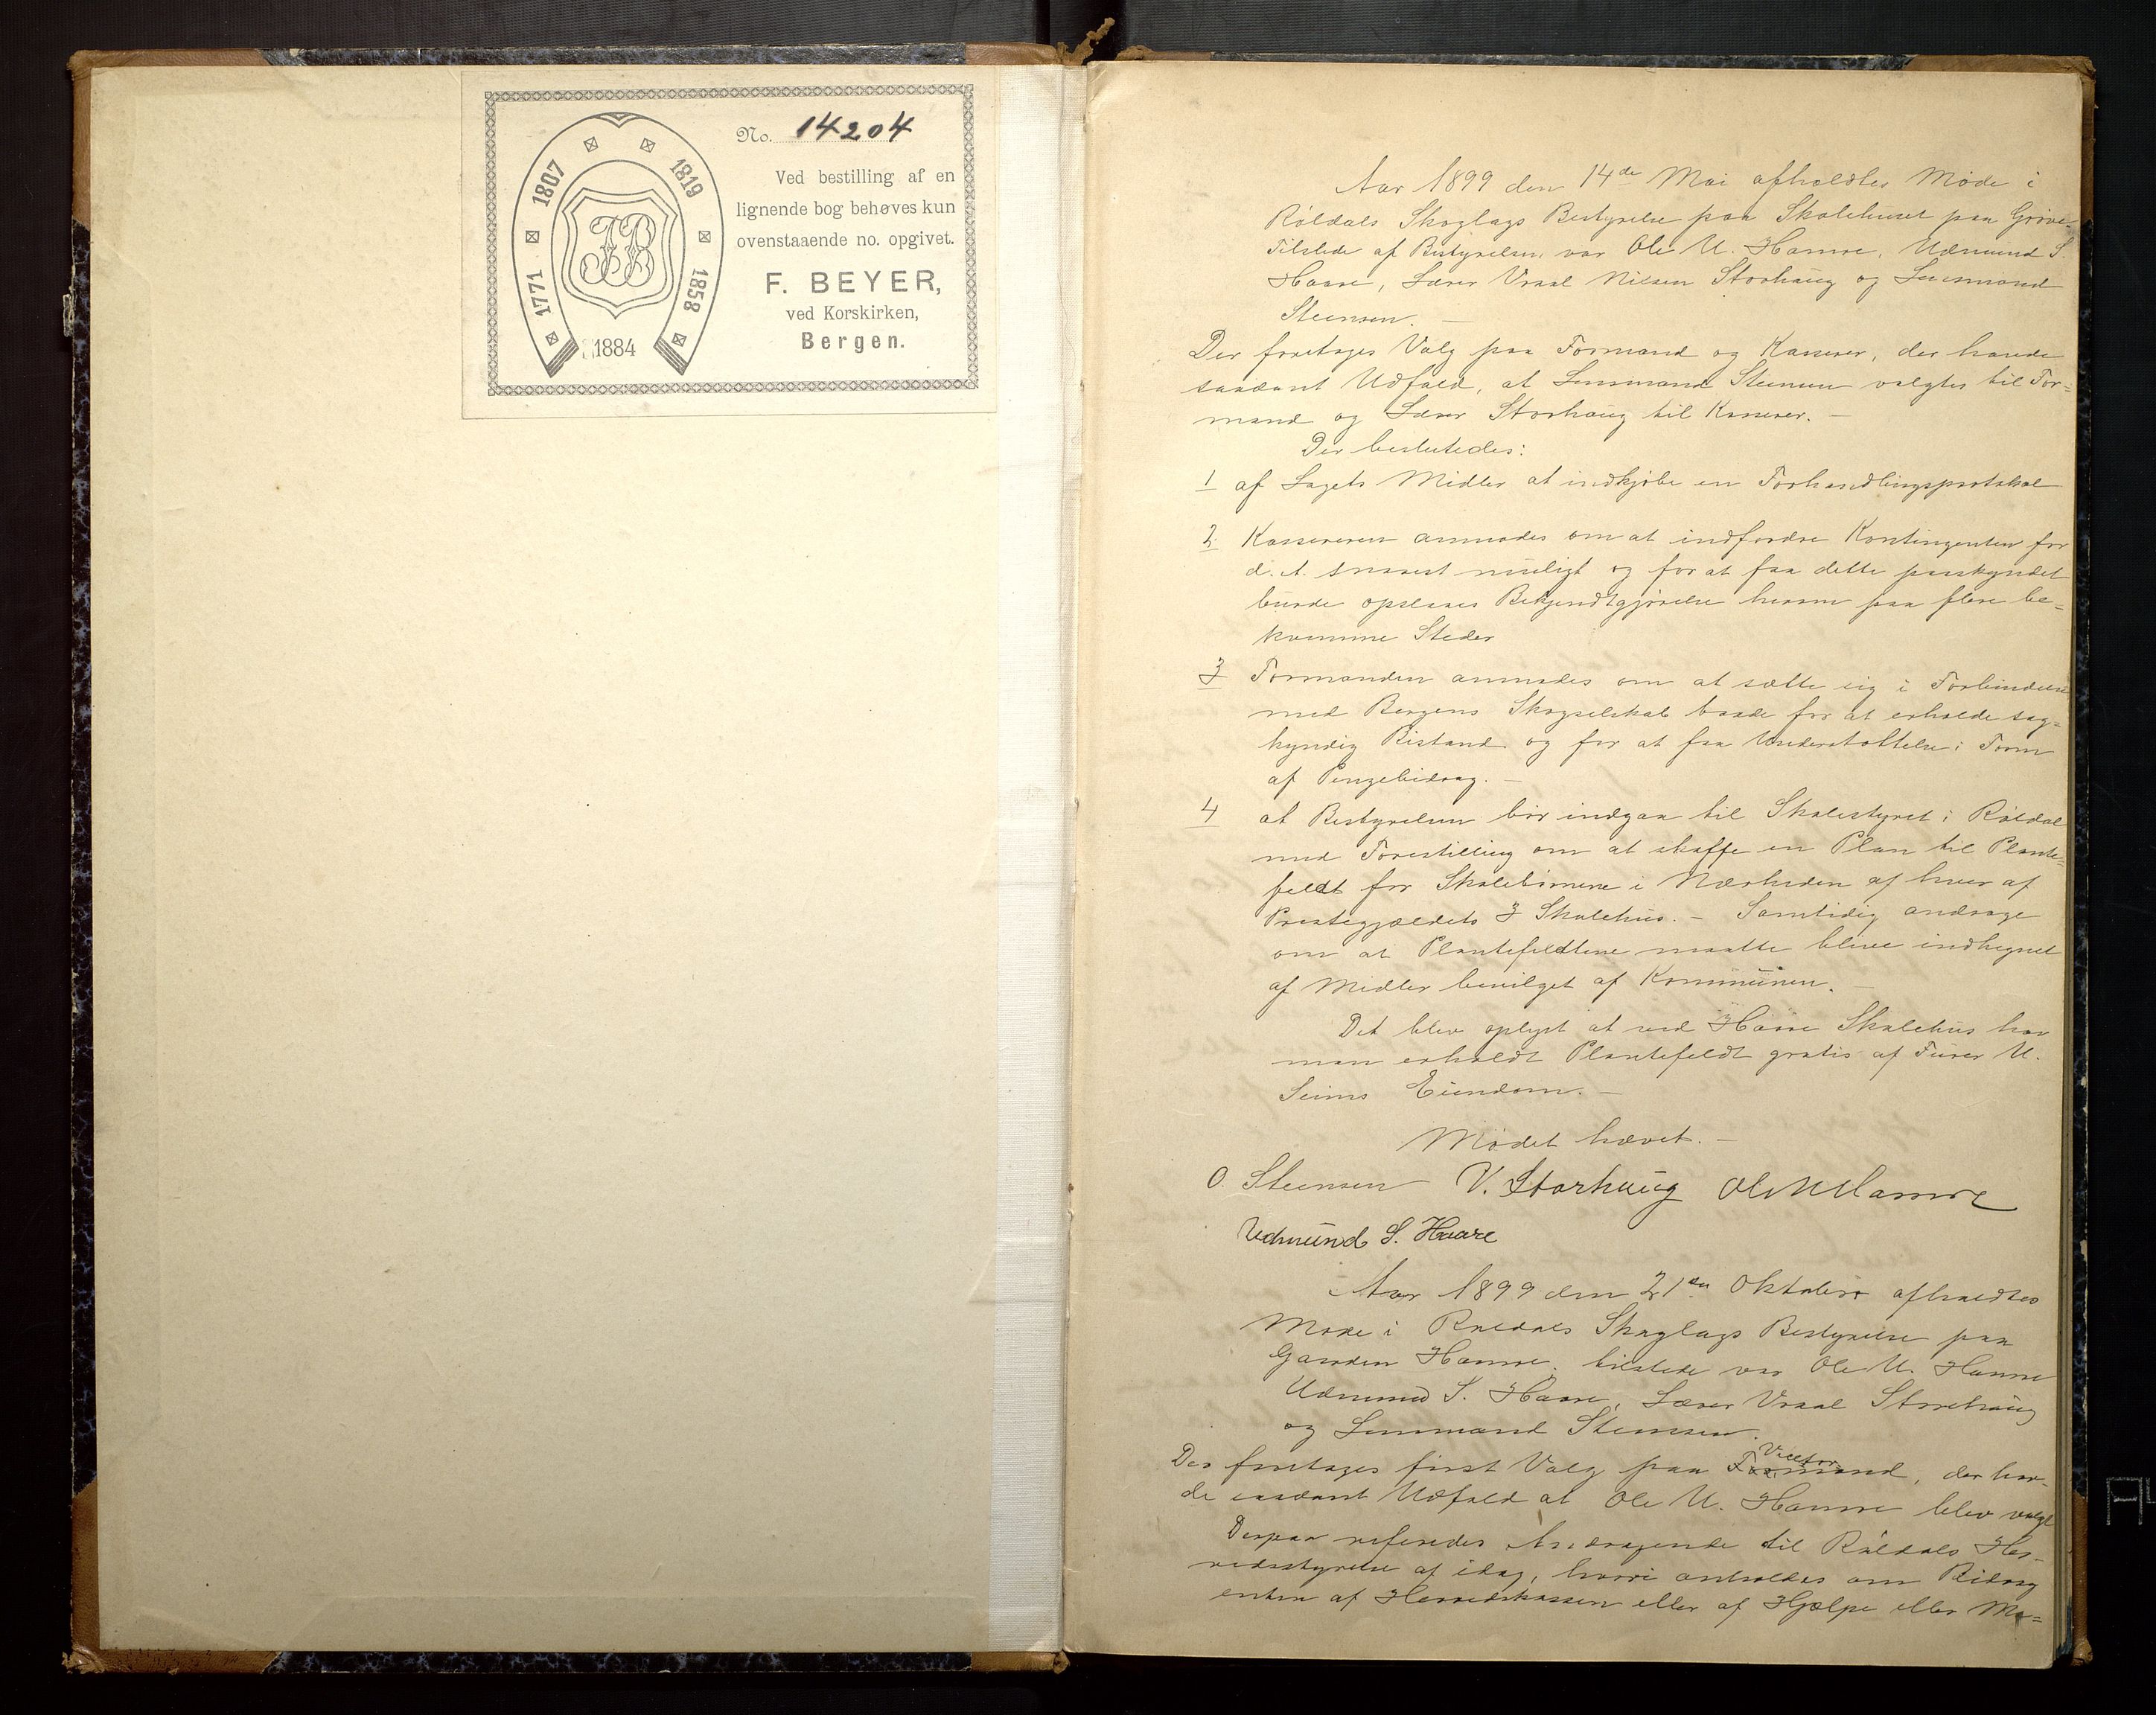 No. 14204
Ved bestilling af en
lignende bog behøves kun
ovenstaaende no. opgivet.
F. BEYER,
ved Korskirken,
Bergen.
1771
1807
1819
1858
1884
JB
Aar 1899 den 14de Mai afholdtes Møde i
Røldals Skoglags Bestyrelse paa Skolehuset paa Grøve.
Tilstede af Bestyrelsen var Ole U. Hamre, Udmund S.
Haare, Lærer Vraal Nilsen Storhaug og Lensmand
Steensen. —
Der foretages Valg paa Formand og Kasserer, der havde
saadant Udfald, at Lensmand Steensen valgtes til For=
mand og Lærer Storhaug til Kasserer. —
Der besluttedes:
1 af Lagets Midler at indkjøbe en Forhandlingsprotokol
2 Kassereren anmodes om at indfordre Kontingenten for
d. A. snarest muligt og for at faa dette paaskyndet
burde opslaaes Bekjendtgjørelse herom paa flere be=
kvemme Steder
3 Formanden anmodes om at sætte sig i Forbindelse
med Bergens Skogselskab baade for at erholde sag=
kyndig Bistand og for at faa Understøttelse i Form
af Pengebidrag. —
4 at Bestyrelsen bør indgaa til Skolestyret i Røldal
med Forestilling om at skaffe en Plan til Plante=
feldt for Skolebørnene i Nærheden af hver af
Præstegjældets 3 Skolehus. — Samtidig andrage
om at Plantefeldtene maatte blive indhegnet
af Midler bevilget af Kommunen. —
Det blev oplyst at ved Haare Skolehus har
man erholdt Plantefeldt gratis af U.
Seims Eiendom. —
Mødet hævet. —
O. Steensen V. Storhaug Ole U Hamre
Udmund S. Haare
Aar 1899 den 21de Oktober afholdtes
Møde i Røldals Skoglags Bestyrelse paa
Gaarden Hamre, tilstede var Ole U. Hamre
Udmund S. Haare, Lærer Vraal Storhaug
og Lensmand Steensen.
Der foretages først Valg paa Viceformand, der hav=
de saadant Udfald at Ole U. Hamre blev valgt
Derpaa referedes Andragende til Røldals Her=
redsstyrelse af idag, hvori anholdes om Bidrag
enten af Herredskassen eller af Hjælpe eller Ma=